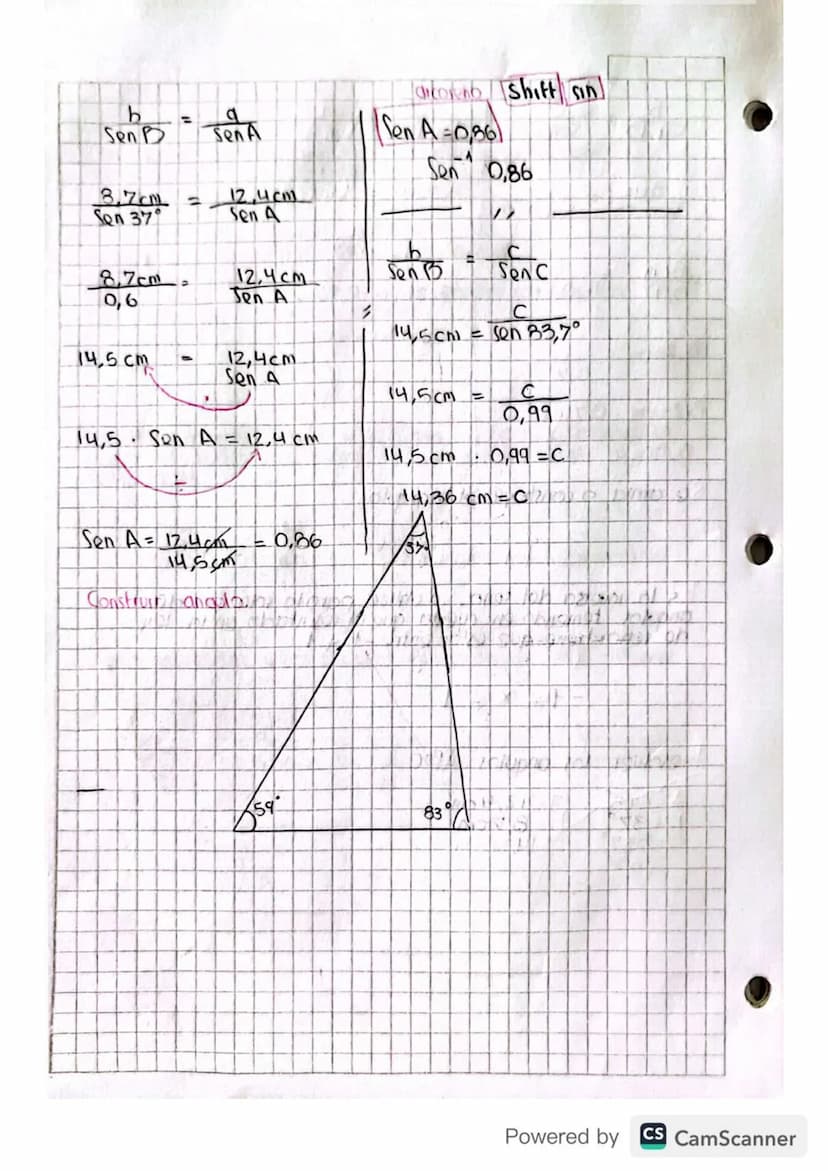 b/Sen B = a/Sen A
8,7cm/Sen 37° = 12,4cm/Sen A
8,7cm/0,6 = 12,4cm/Sen A
14,5 cm = 12,4cm/Sen A
.
14,5 . Sen A = 12,4 cm
÷
Sen A = 12,4cm/14,5cm = 0,86
Construir angulo
Shift sin
Sen A = 0,86
Sen⁻¹ 0,86
——— ,, ———
b/Sen B = c/Sen C
14,5cm = c/Sen 83,7°
14,5cm = c/0,99
14,5cm . 0,99 = C
14,36 cm = C
37°
59°
83°
Powered by CS CamScanner